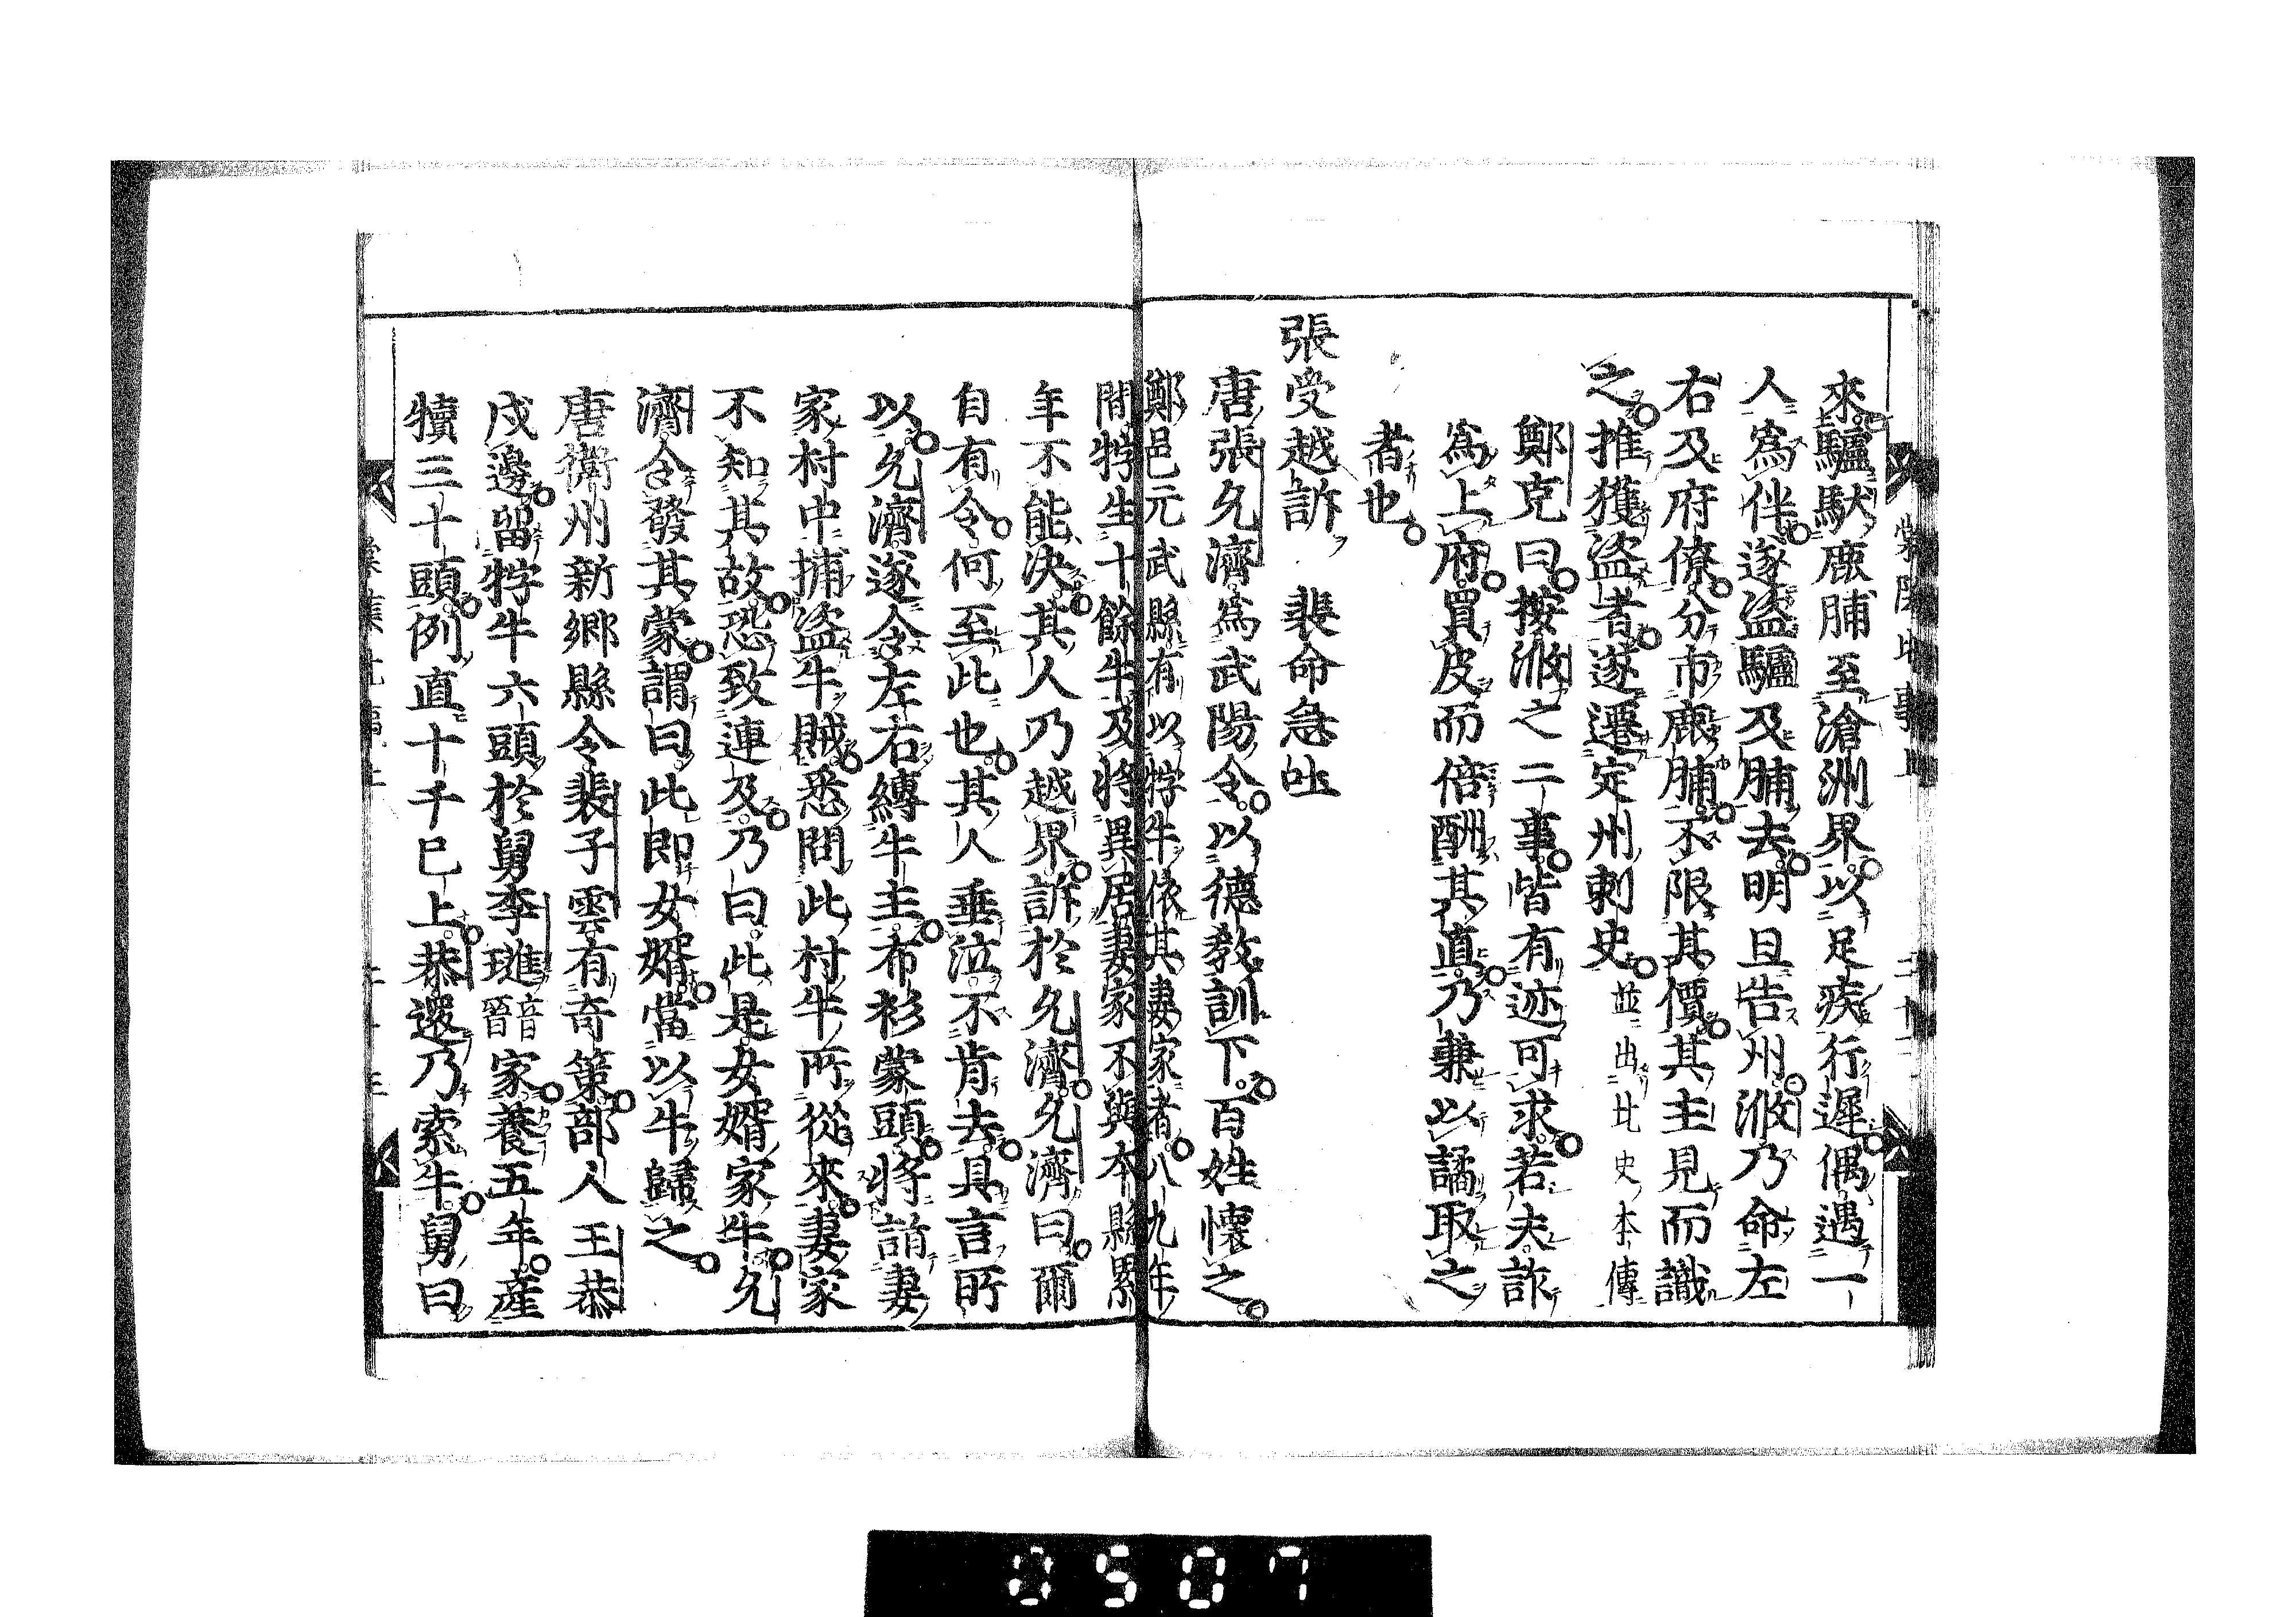 來驢馱鹿脯至滄洲界以足疾行遲偶遇一
人爲伴遂盜驢及脯去明旦告州浟乃命左
右及府僚分市鹿脯不限其價其主見而識
之推獲盜者遂遷定州刺史並出北史本傳
鄭克曰按浟之二事皆有迹可求若夫詐
爲上府買皮而倍酬其直乃兼以譎取之
者也
張受越訴 裴命急吐
唐張允濟爲武陽令以德教訓下百姓懷之
鄭邑元武縣有以牸牛依其妻家者八九年
間牸生十餘牛及將異居妻家不與本縣累
年不能決其人乃越界訴於允濟允濟曰爾
自有令何至此也其人垂泣不肯去具言所
以允濟遂令左右縛牛主布衫蒙頭將詣妻
家村中捕盜牛賊悉問此村牛所從來妻家
不知其故恐致連及乃曰此是女婿家牛允
濟令發其蒙謂曰此即女婿當以牛歸之
唐衛州新鄉縣令裴子雲有奇策部人王恭
戍邊留牸牛六頭於舅李璡音晉家養五年產
犢三十頭例直十千已上恭還乃索牛舅曰
0507